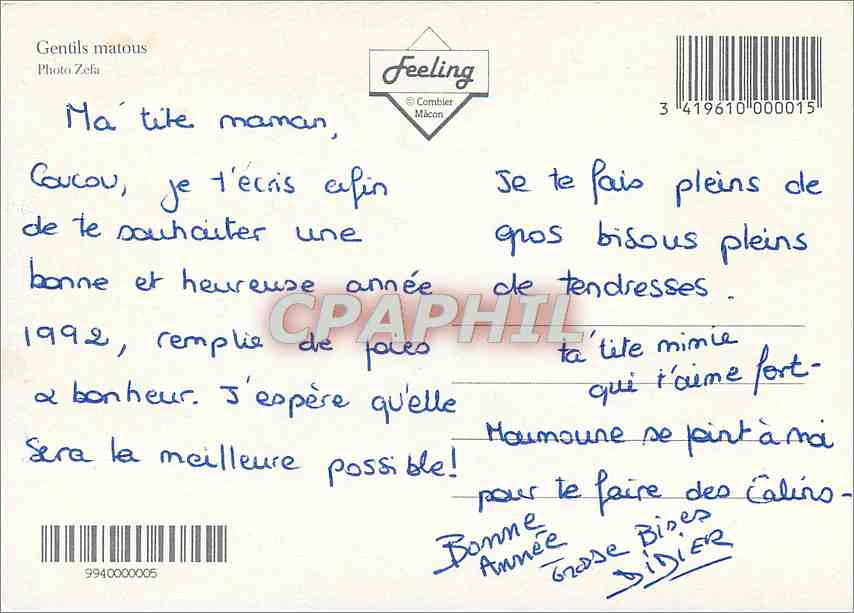 Gentils matous
Photo Zefa
Feeling
© Combier
Mâcon
3 419610 000015
Ma' tite maman,
Coucou, je t'écris afin
de te souhaiter une
bonne et heureuse année
1992, remplie de joies
& bonheur. J'espère qu'elle
Sera la meilleure possible!
Je te fais pleins de
gros bisous pleins
de tendresses.
ta' tite mimie
qui t'aime fort-
Moumoune se joint à moi
pour te faire des Câlins-
Bonne
Année
Grosse Bises
DIDIER
CPAPHIL
9940000005